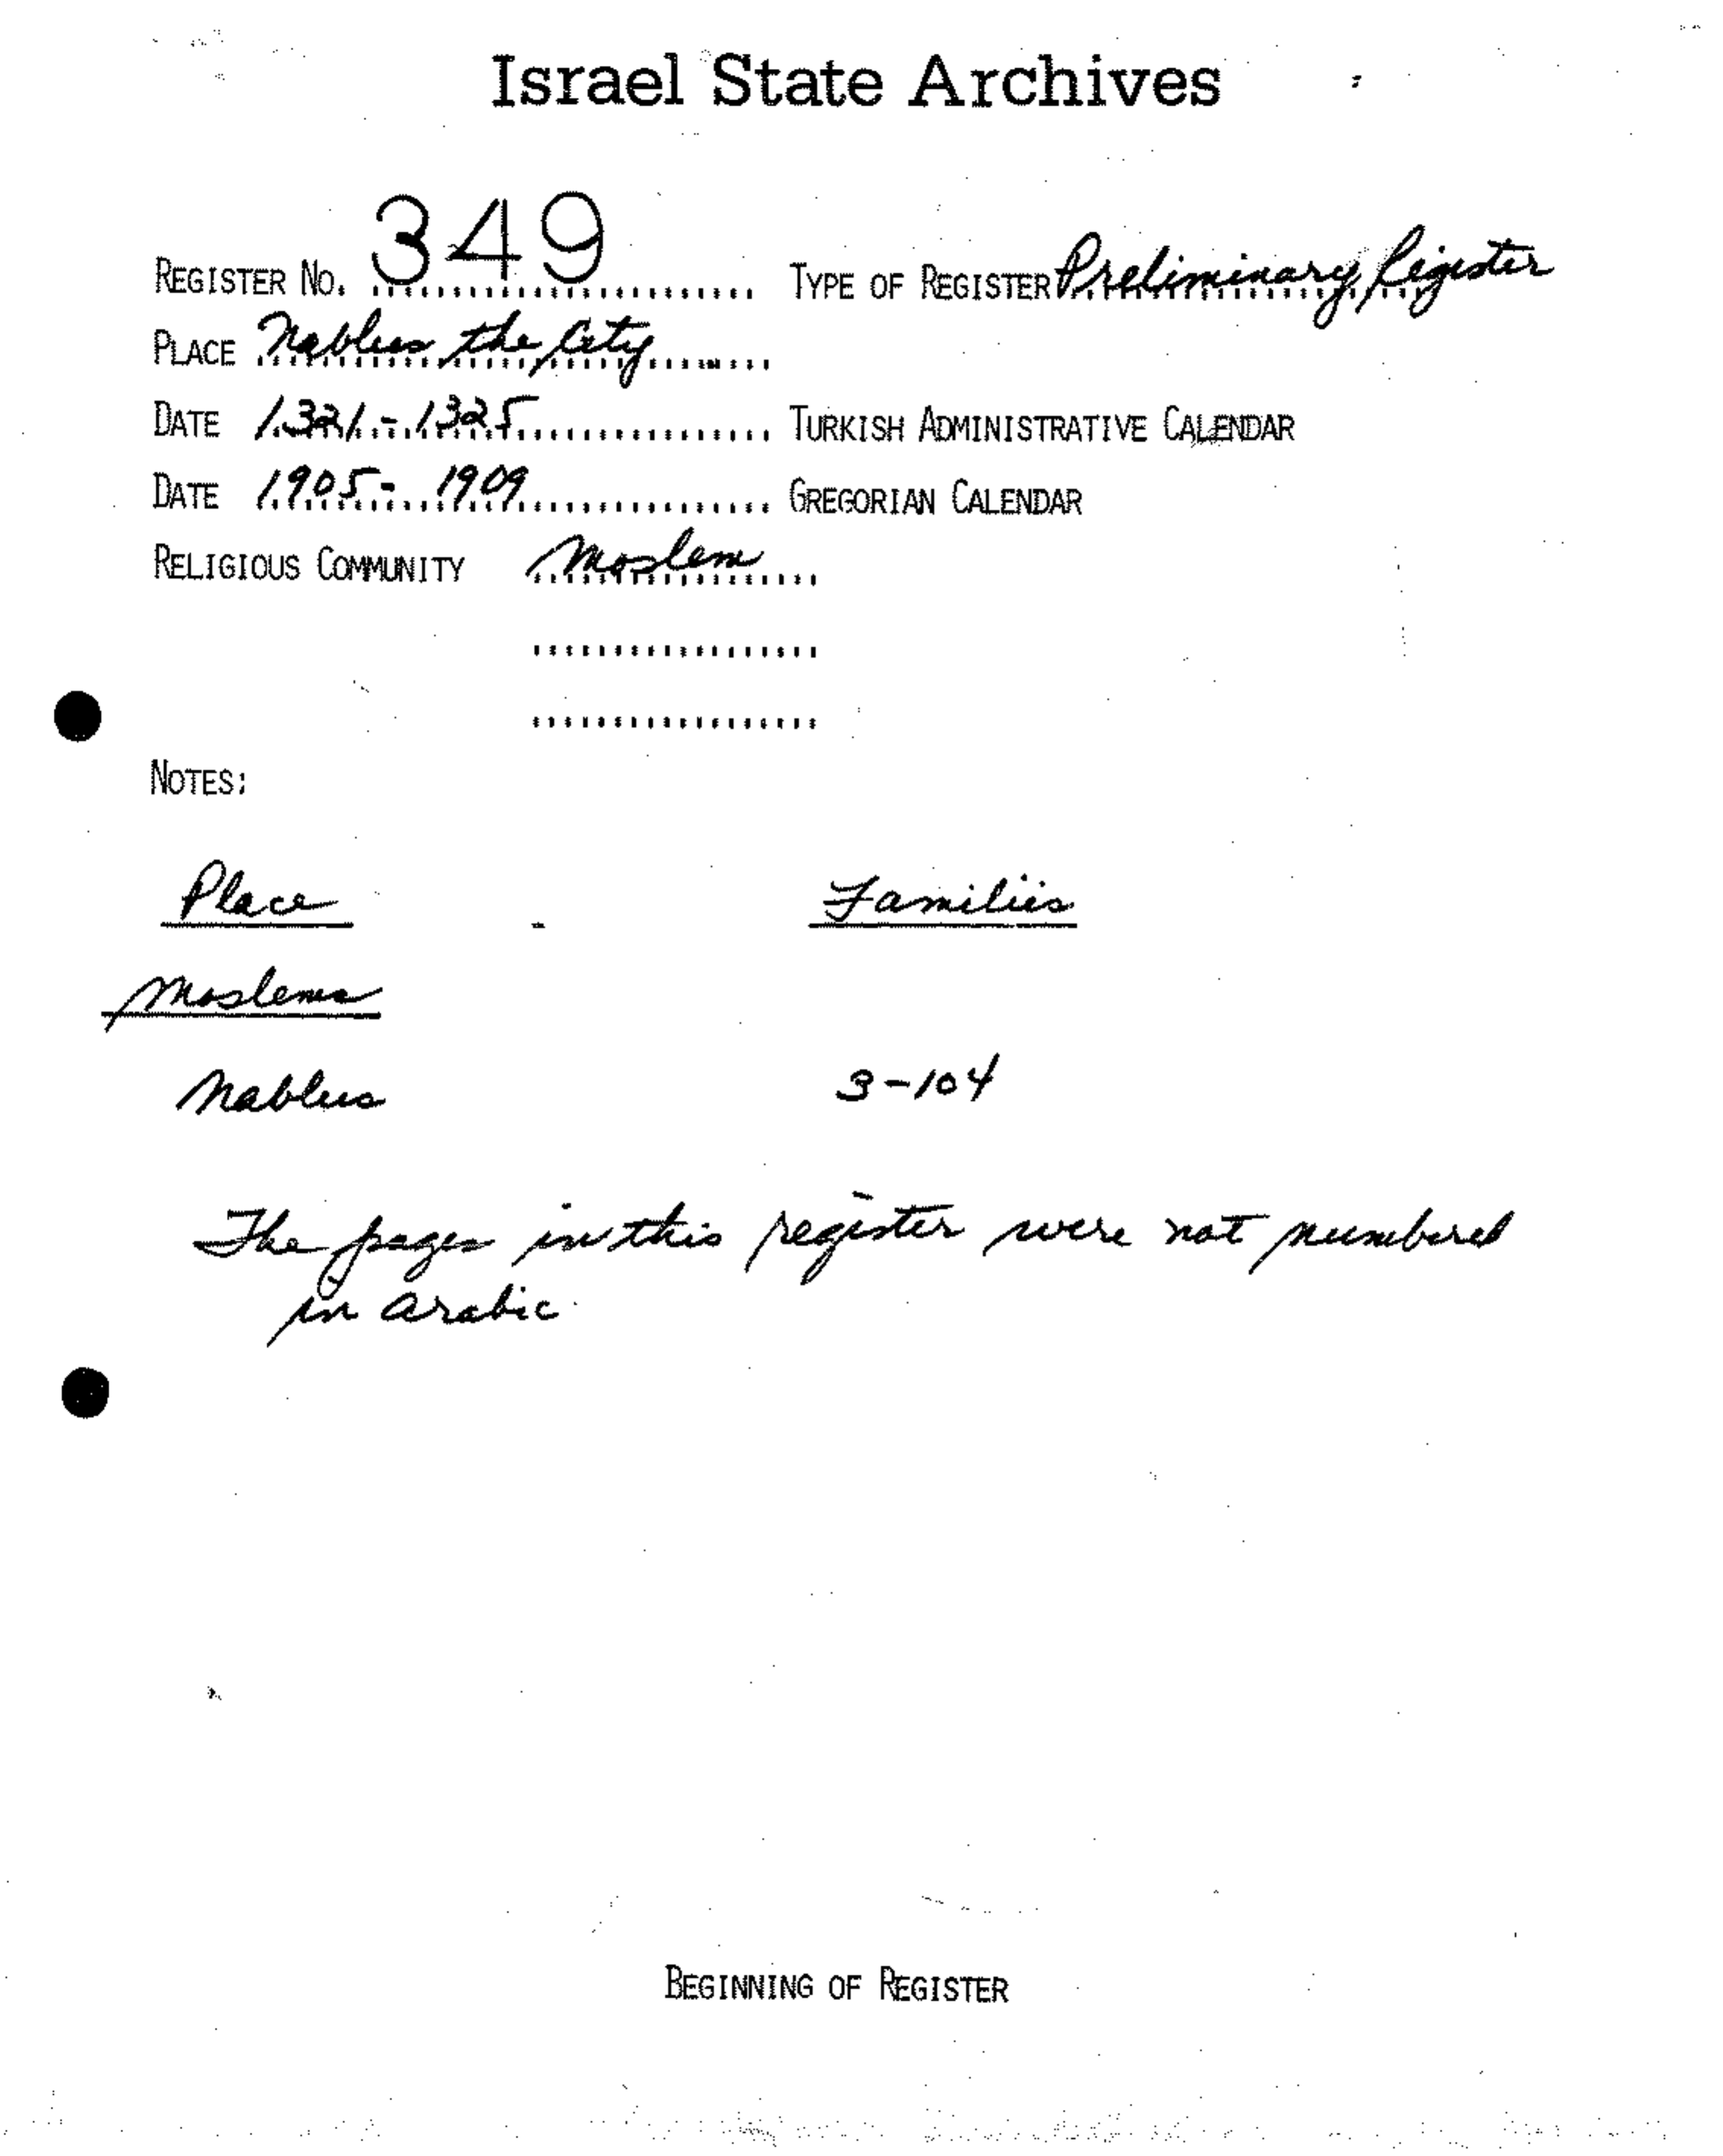 Israel State Archives
REGISTER NO. 349 TYPE OF REGISTER Preliminary Register
PLACE Nablus the City
DATE 1321-1325 TURKISH ADMINISTRATIVE CALENDAR
DATE 1905-1909 GREGORIAN CALENDAR
RELIGIOUS COMMUNITY Moslem
NOTES:
Place - Families
Moslems
Nablus 3-104
The pages in this register were not numbered
in arabic.
BEGINNING OF REGISTER